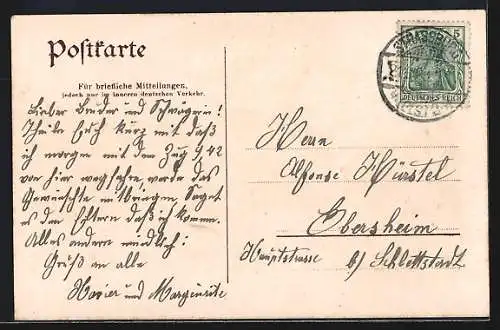 Postkarte
Für briefliche Mitteilungen,
jedoch nur im inneren deutschen Verkehr.
STRASSBURG
5
DEUTSCHES REICH
Lieber Bruder und Schwägerin!
Theile Euch kurz mit daß
ich morgen mit dem Zug 9 42
von hier wegfahre werde das
Gewünschte mitbringen Saget
es den Eltern daß ich komme.
Alles andere mündlich:
Gruß an alle
Xavier und Marguerite
Herrn
Alfonse Hürstel
Ebersheim
Hauptstrasse b/ Schlettstadt